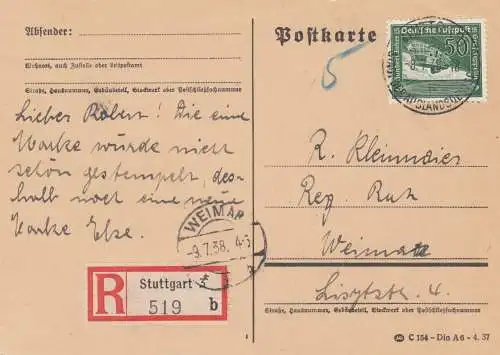 Absender:
Wohnort, auch Zustell- oder Leitpostamt
Straße, Hausnummer, Gebäudeteil, Stockwerk oder Postschließfachnummer
Lieber Robert! Die eine
Marke wurde nicht
schön gestempelt, des-
halb noch eine neue
Marke Else.
WEIMAR
-9.7.38. 4-5
R
Stuttgart
519 b
Postkarte
5
Deutsche Luftpost
50
AUSLANDSU
R. Kleinmaier
Reg. Rat
Weimar
Lisztstr. 4.
Straße, Hausnummer, Gebäudeteil, Stockwerk oder Postschließfachnummer
C 154 - Din A 6 - 4. 37